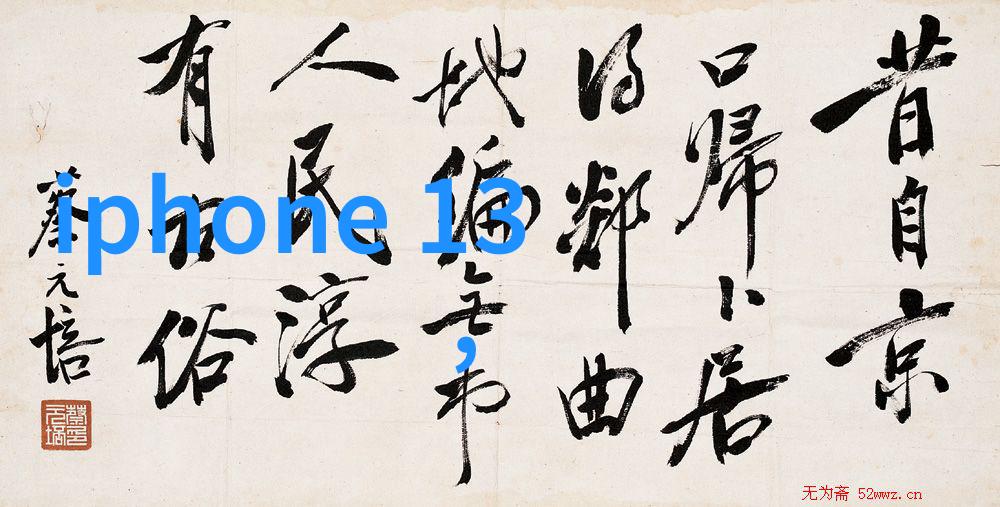 昔自京
口歸卜居
得鄰曲
地偏無市
人民淳
有古俗
蔡元培
iphone 13
,
无为斋 52wwz.cn